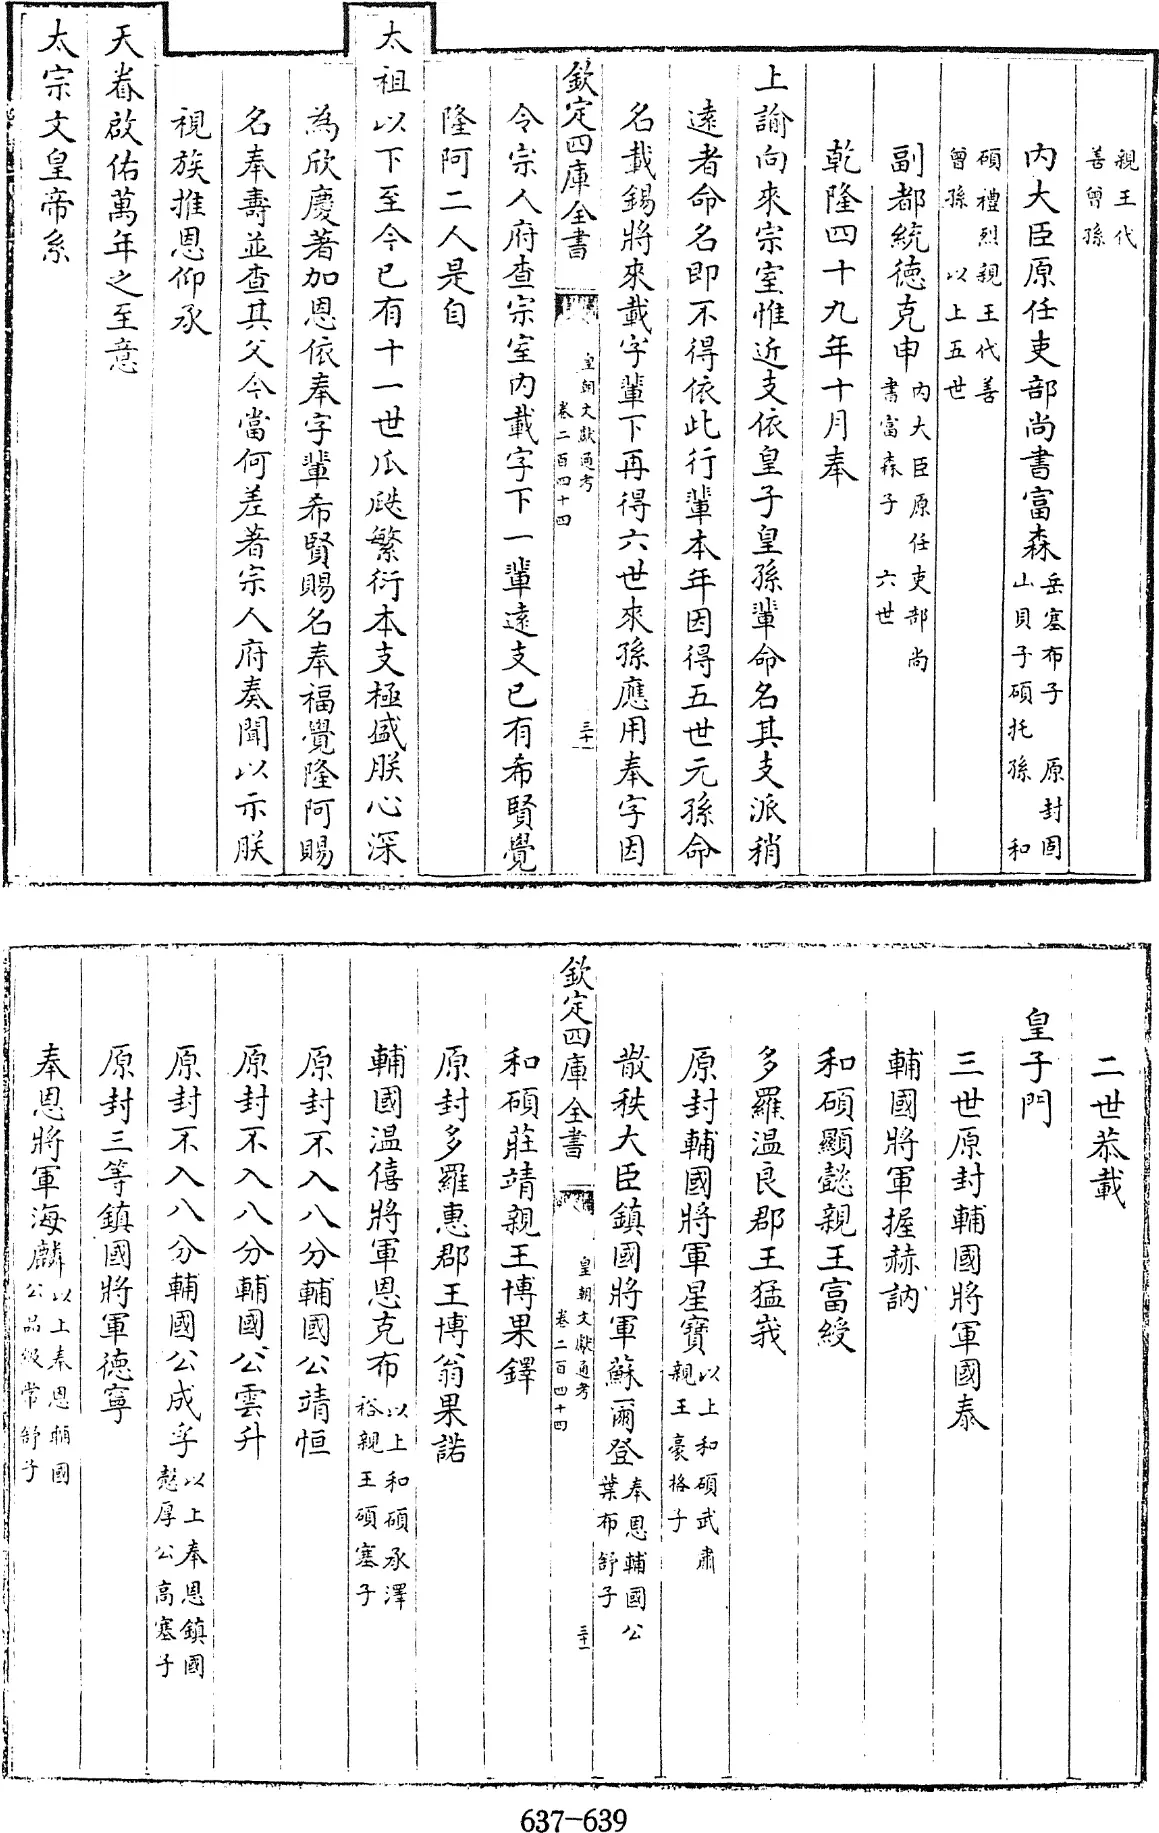 親王代
善曾孫
内大臣原任吏部尚書富森岳塞布子 原封固山貝子碩托孫 和
碩禮烈親王代善
曾孫 以上五世
副都統德克申内大臣原任吏部尚書富森子 六世
乾隆四十九年十月奉
上諭向來宗室惟近支依皇子皇孫輩命名其支派稍
遠者命名即不得依此行輩本年因得五世元孫命
名載錫將來載字輩下再得六世來孫應用奉字因
欽定四庫全書 皇朝文獻通考 卷二百四十四 三十一
令宗人府查宗室内載字下一輩遠支已有希賢覺
隆阿二人是自
太祖以下至今已有十一世瓜瓞繁衍本支極盛朕心深
為欣慶著加恩依奉字輩希賢賜名奉福覺隆阿賜
名奉壽並查其父今當何差著宗人府奏聞以示朕
視族推恩仰承
天眷啟佑萬年之至意
太宗文皇帝系
二世恭載
皇子門
三世原封輔國將軍國泰
輔國將軍握赫訥
和碩顯懿親王富綬
多羅温良郡王猛峩
原封輔國將軍星寶以上和碩武肅親王豪格子
散秩大臣鎮國將軍蘇爾登奉恩輔國公葉布舒子
欽定四庫全書 皇朝文獻通考 卷二百四十四 三十一
和碩莊靖親王博果鐸
原封多羅惠郡王博翁果諾
輔國温僖將軍恩克布以上和碩承澤裕親王碩塞子
原封不入八分輔國公靖恒
原封不入八分輔國公雲升
原封不入八分輔國公成孚以上奉恩鎮國慤厚公高塞子
原封三等鎮國將軍德寧
奉恩將軍海麟以上奉恩輔國公品級常舒子
637-639